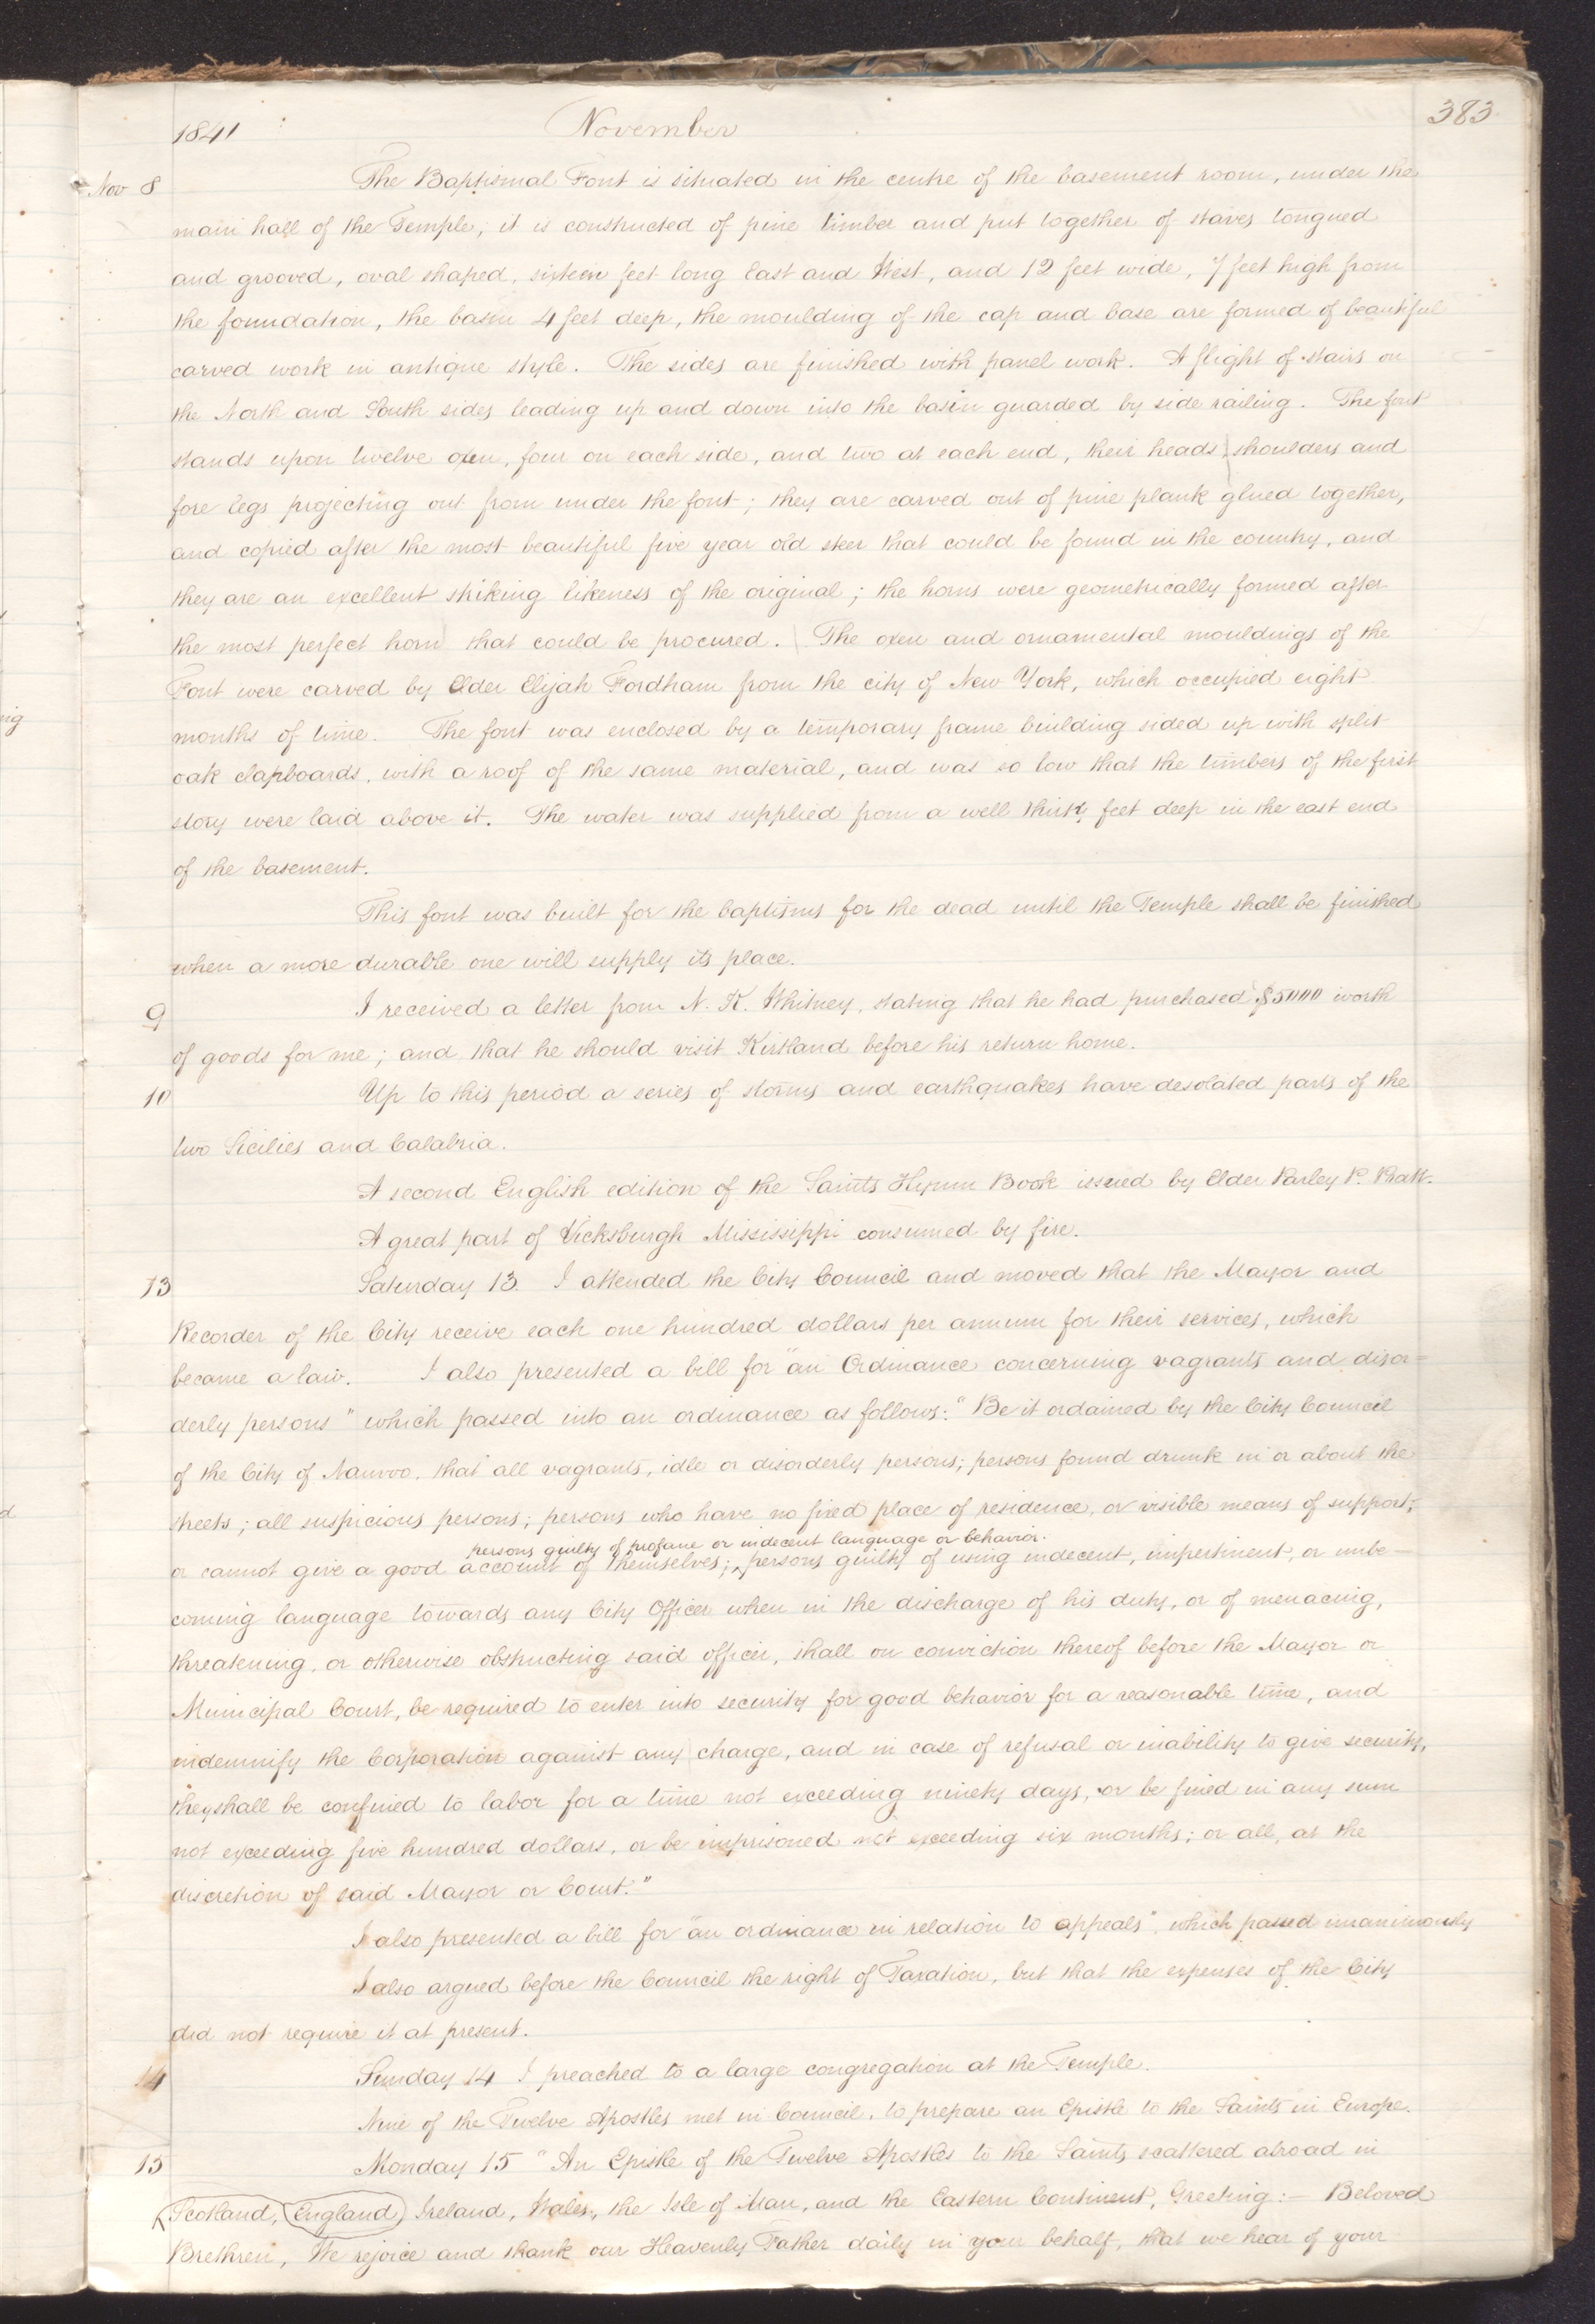 1841 November 383.
Nov 8 The Baptismal Font is situated in the centre of the basement room, under the
main hall of the Temple; it is constructed of pine timber and put together of staves tongued
and grooved, oval shaped, sixteen feet long East and West, and 12 feet wide, 7 feet high from
the foundation, the basin 4 feet deep, the moulding of the cap and base are formed of beautiful
carved work in antique style. The sides are finished with panel work. A flight of stairs on
the North and South sides leading up and down into the basin guarded by side railing. The font
stands upon twelve oxen, four on each side, and two at each end, their heads shoulders and
fore legs projecting out from under the font; they are carved out of pine plank glued together,
and copied after the most beautiful five year old steer that could be found in the country, and
they are an excellent striking likeness of the original; the horns were geometrically formed after
the most perfect horn that could be procured. The oxen and ornamental mouldings of the
Font were carved by Elder Elijah Fordham from the city of New York, which occupied eight
months of time. The font was enclosed by a temporary frame building sided up with split
oak clapboards, with a roof of the same material, and was so low that the timbers of the first
story were laid above it. The water was supplied from a well thirty feet deep in the east end
of the basement.
This font was built for the baptisms for the dead until the Temple shall be finished
when a more durable one will supply its place.
9 I received a letter from N. K. Whitney, stating that he had purchased $5000 worth
of goods for me; and that he should visit Kirtland before his return home.
10 Up to this period a series of storms and earthquakes have desolated parts of the
two Sicilies and Calabria.
A second English edition of the Saints Hymn Book issued by Elder Parley P. Pratt.
A great part of Vicksburgh Mississippi consumed by fire.
13 Saturday 13. I attended the City Council and moved that the Mayor and
Recorder of the City receive each one hundred dollars per annum for their services, which
became a law. I also presented a bill for "an Ordinance concerning vagrants and disor=
derly persons" which passed into an ordinance as follows: "Be it ordained by the City Council
of the City of Nauvoo, that all vagrants, idle or disorderly persons; persons found drunk in or about the
streets; all suspicious persons; persons who have no fixed place of residence, or visible means of support;
persons guilty of profane or indecent language or behavior.
or cannot give a good account of themselves; ^ persons guilty of using indecent, impertinent, or unbe-
coming language towards any City Officer when in the discharge of his duty, or of menacing,
threatening, or otherwise obstructing said officer, shall on conviction thereof before the Mayor or
Municipal Court, be required to enter into security for good behavior for a reasonable time, and
indemnify the Corporation against any charge, and in case of refusal or inability to give security,
they shall be confined to labor for a time not exceeding ninety days, or be fined in any sum
not exceeding five hundred dollars, or be imprisoned not exceeding six months; or all, at the
discretion of said Mayor or Court."
I also presented a bill for "an ordinance in relation to appeals", which passed unanimously
I also argued before the Council the right of Taxation, but that the expenses of the City
did not require it at present.
14 Sunday 14 I preached to a large congregation at the Temple.
Nine of the Twelve Apostles met in Council, to prepare an Epistle to the Saints in Europe.
15 Monday 15 "An Epistle of the Twelve Apostles to the Saints scattered abroad in
Scotland, England, Ireland, Wales, the Isle of Man, and the Eastern Continent, Greeting:— Beloved
Brethren, We rejoice and thank our Heavenly Father daily in your behalf, that we hear of your